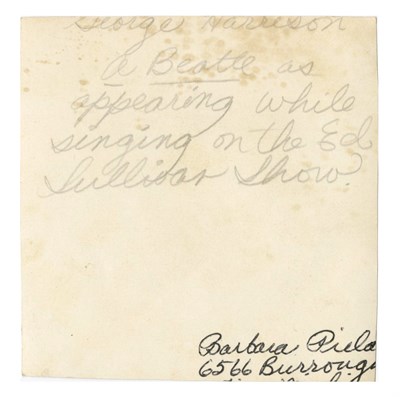 George Harrison
A Beatle as
appearing while
singing on the Ed
Sullivan Show.
Barbara
6566 Burroug